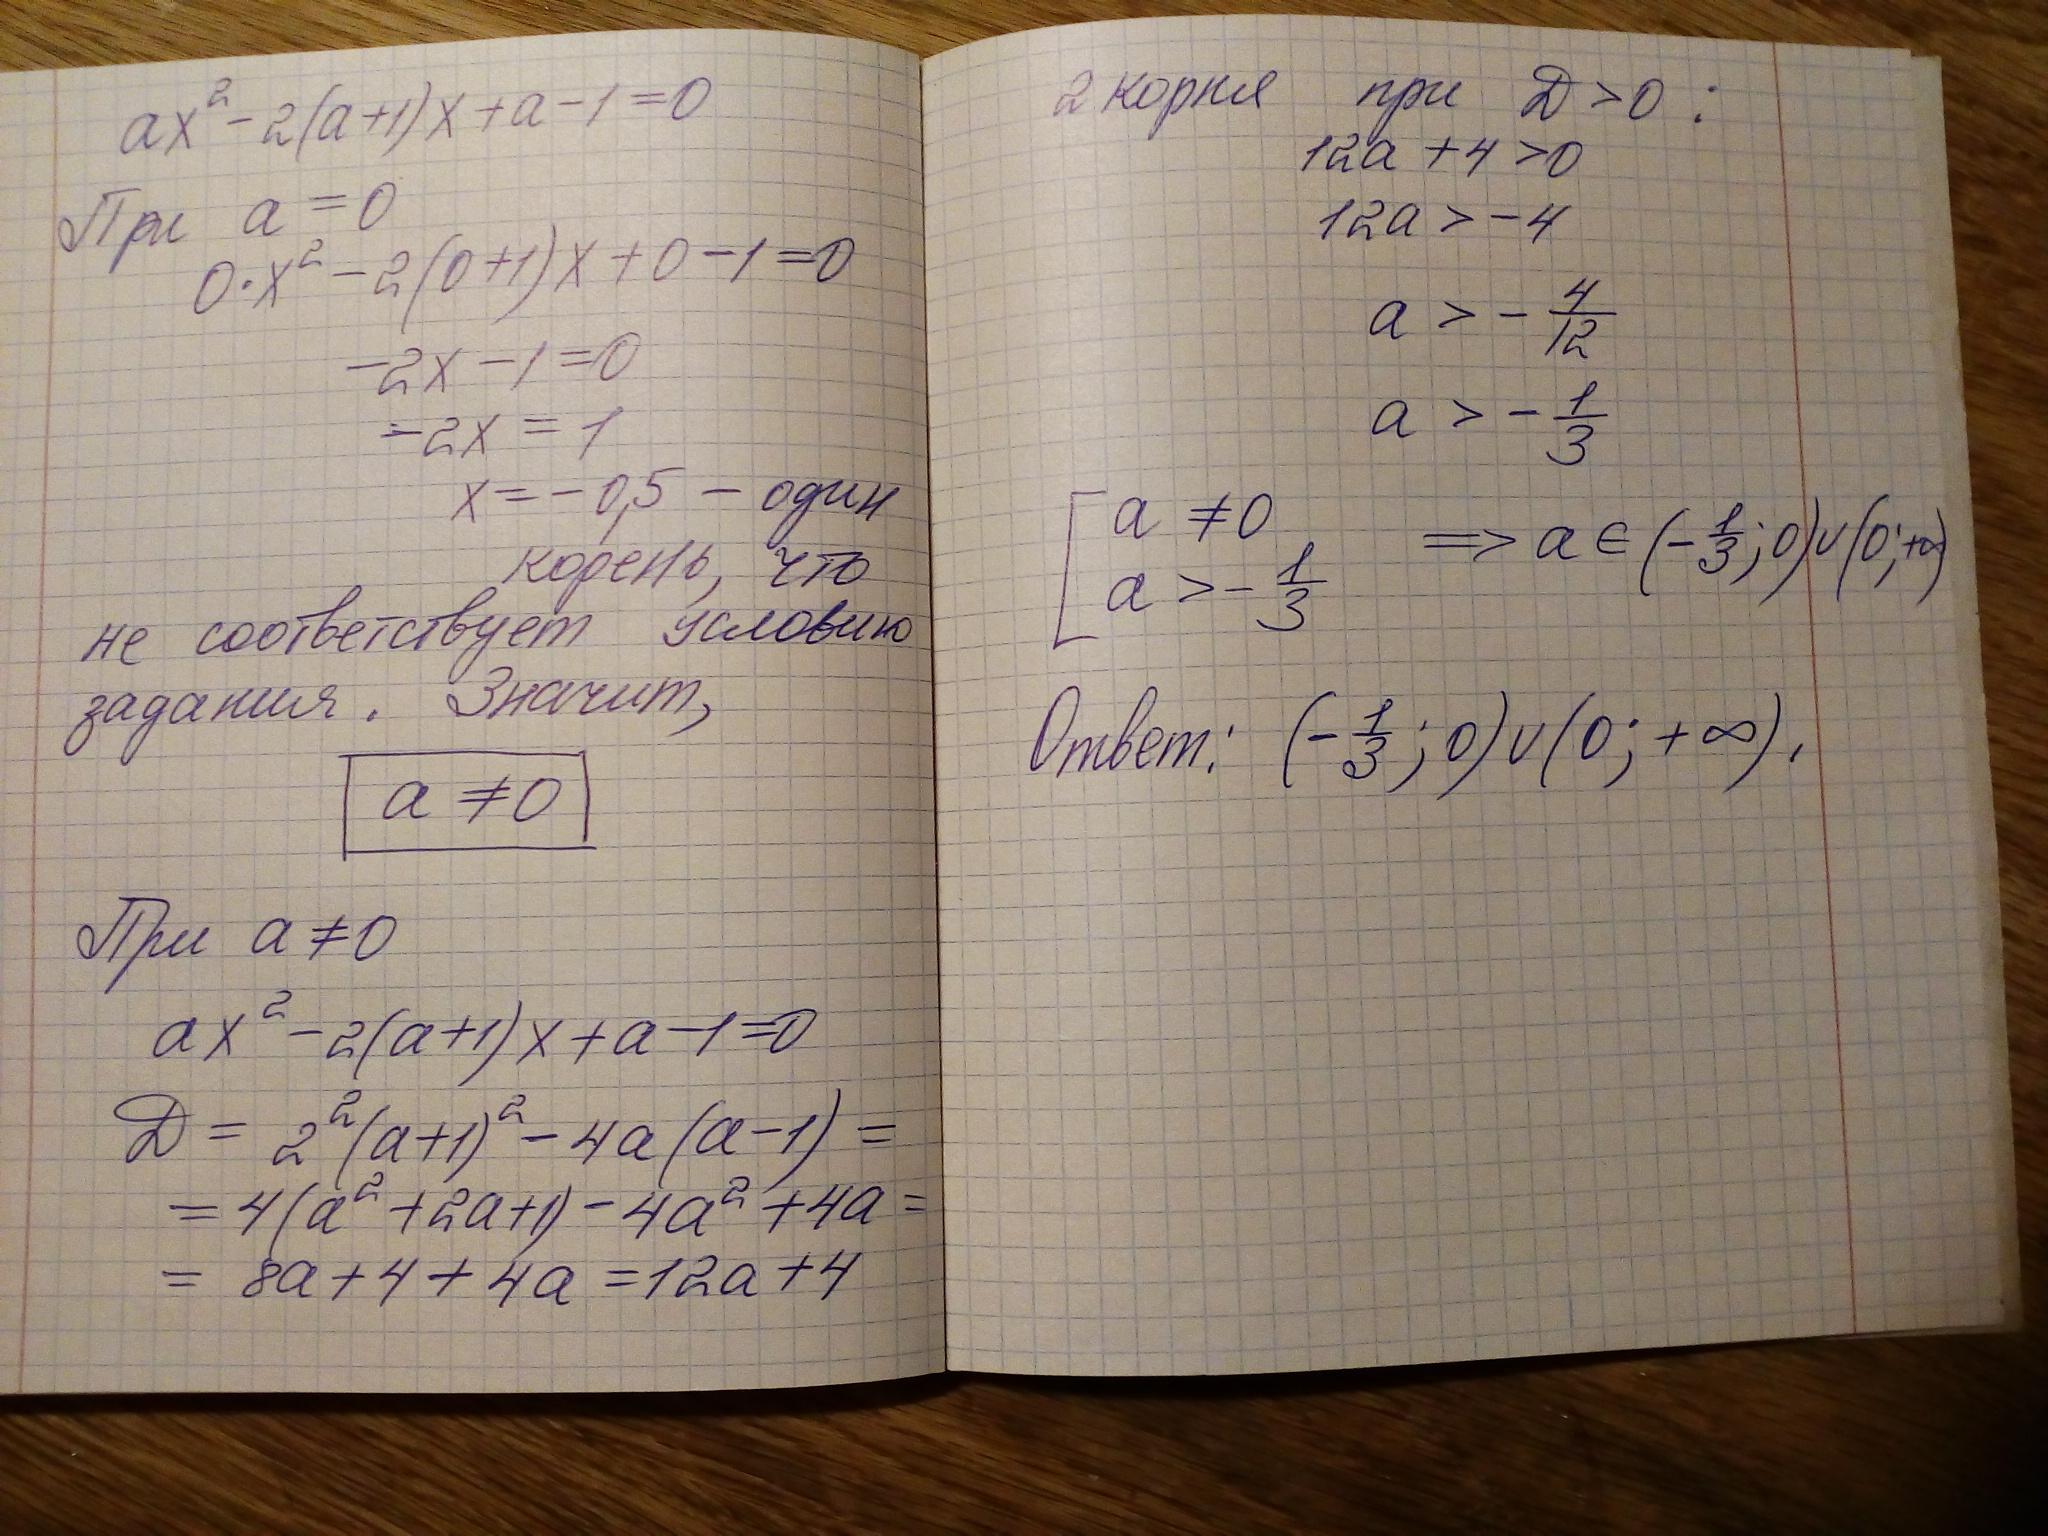 ax² - 2(a+1)x + a - 1 = 0
При a = 0
0·x² - 2(0+1)x + 0 - 1 = 0
-2x - 1 = 0
-2x = 1
x = -0,5 - один
корень, что
не соответствует условию
задания. Значит,
a ≠ 0
При a ≠ 0
ax² - 2(a+1)x + a - 1 = 0
D = 2²(a+1)² - 4a(a-1) =
= 4(a² + 2a + 1) - 4a² + 4a =
= 8a + 4 + 4a = 12a + 4
2 корня при D > 0 :
12a + 4 > 0
12a > -4
a > - 4/12
a > - 1/3
[ a ≠ 0
a > - 1/3 => a ∈ (- 1/3 ; 0) ∪ (0; +∞)
Ответ: (- 1/3 ; 0) ∪ (0; + ∞).